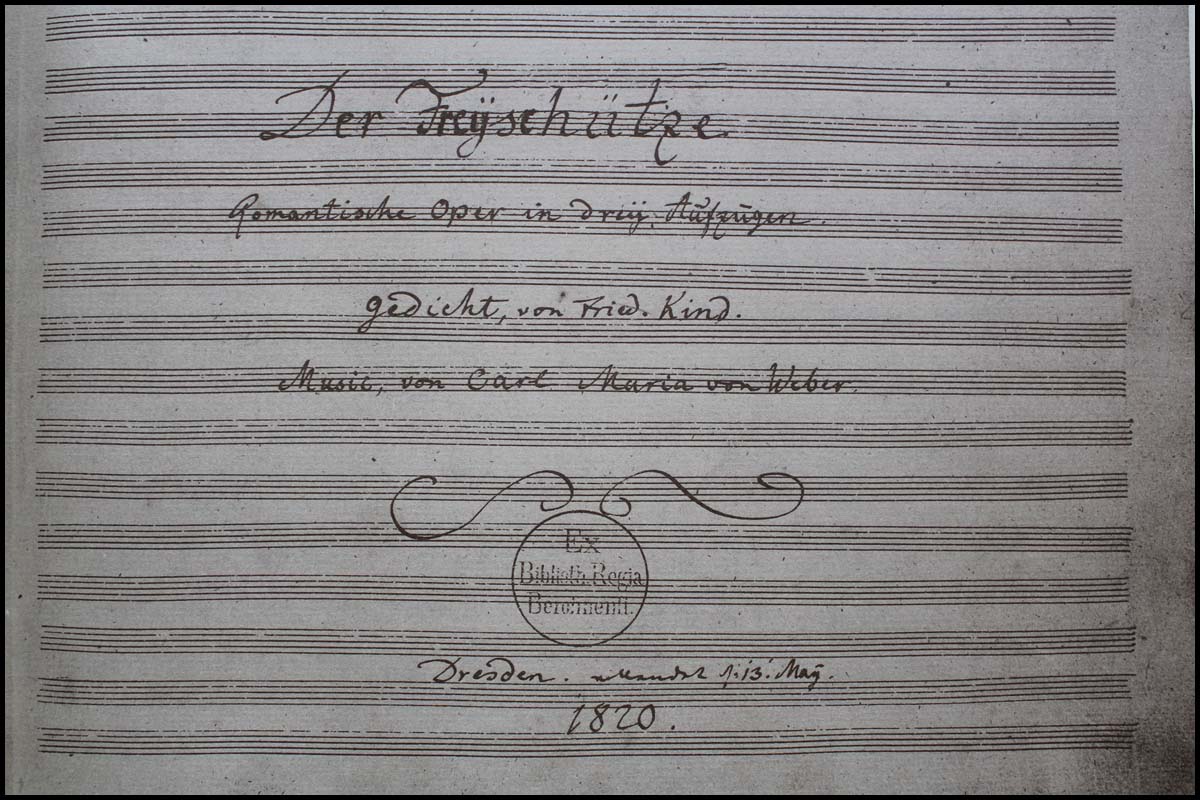 Der Freÿschütze.
Romantische Oper in dreÿ Aufzügen.
Gedicht, von Fried. Kind.
Music, von Carl Maria von Weber.
Ex
Biblioth. Regia
Berolinenſi.
Dresden. d: 13' Maÿ.
1820.